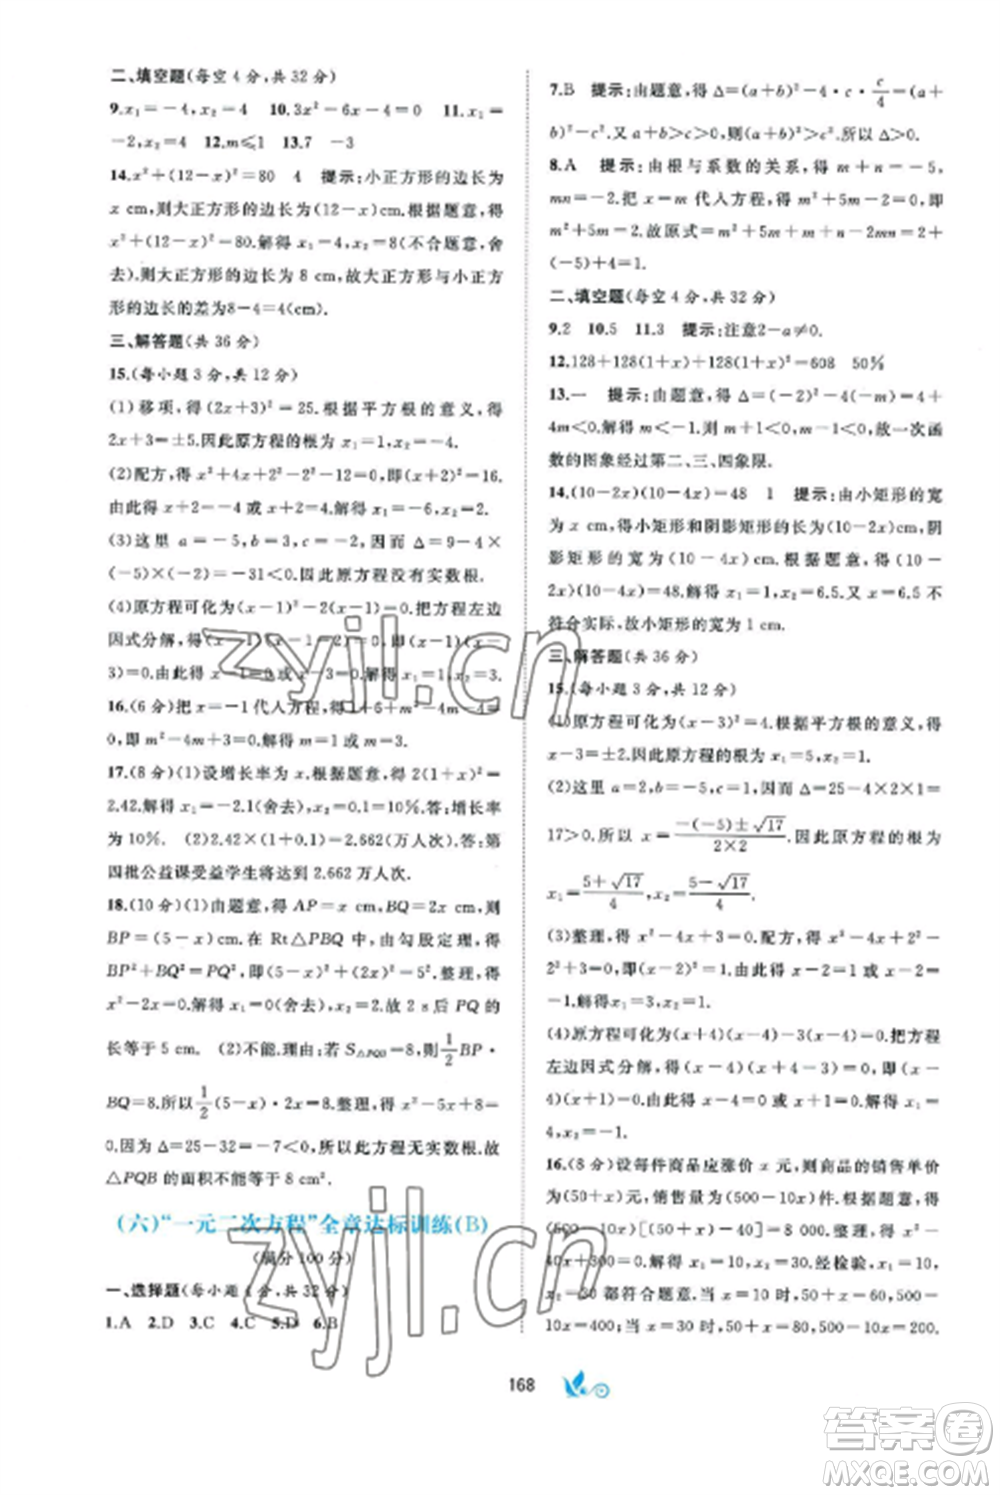 二、填空题(每空4分,共32分)
9.x₁=-4,x₂=4 10.3x²-6x-4=0 11.x₁=
-2,x₂=4 12.m≤1 13.7 -3
14.x²+(12-x)²=80 4 提示:小正方形的边长为
x cm,则大正方形的边长为(12-x)cm.根据题意,得
x²+(12-x)²=80.解得x₁=4,x₂=8(不合题意,舍
去).则大正方形的边长为8 cm,故大正方形与小正方
形的边长的差为8-4=4(cm).
三、解答题(共36分)
15.(每小题3分,共12分)
(1)移项,得(2x+3)²=25.根据平方根的意义,得
2x+3=±5.因此原方程的根为x₁=1,x₂=-4.
(2)配方,得x²+4x+2²-2²-12=0,即(x+2)²=16,
由此得x+2=-4或x+2=4.解得x₁=-6,x₂=2.
(3)这里a=-5,b=3,c=-2.因而Δ=9-4×
(-5)×(-2)=-31<0.因此原方程没有实数根.
(4)原方程可化为(x-1)²-2(x-1)=0.把方程左边
因式分解,得(x-1)(x-1-2)=0,即(x-1)(x-
3)=0.由此得x-1=0或x-3=0.解得x₁=1,x₂=3.
16.(6分)把x=-1代入方程,得1+6+m²-4m-4=
0,即m²-4m+3=0.解得m₁=1,m₂=3.
17.(8分)(1)设增长率为x.根据题意,得2(1+x)²=
2.42.解得x₁=-2.1(舍去),x₂=0.1=10%.答:增长率
为10%. (2)2.42×(1+0.1)=2.662(万人次).答:第
四批公益课受益学生将达到2.662万人次.
18.(10分)(1)由题意,得AP=x cm,BQ=2x cm,则
BP=(5-x)cm.在Rt△PBQ中,由勾股定理,得
BP²+BQ²=PQ²,即(5-x)²+(2x)²=5².整理,得
x²-2x=0.解得x₁=0(舍去),x₂=2.故2 s后PQ的
长等于5 cm. (2)不能.理由:若S△PQB=8,则1/2BP·
BQ=8.所以1/2(5-x)·2x=8.整理,得x²-5x+8=
0.Δ=25-32=-7<0,所以此方程无实数根.故
△PQB的面积不能等于8 cm².
(六)“一元二次方程”全章达标训练(B)
(满分100分)
一、选择题(每小题4分,共32分)
1.A 2.D 3.C 4.C 5.D 6.B
7.B 提示:由题意,得Δ=(a+b)²-4·c·c/4=(a+
b)²-c².又a+b>c>0,则(a+b)²>c².所以Δ>0.
8.A 提示:由根与系数的关系,得m+n=-5,
mn=-2.把x=m代入方程,得m²+5m-2=0,即
m²+5m=2.故原式=m²+5m+m+n-2=2+
(-5)+4=1.
二、填空题(每空4分,共32分)
9.2 10.5 11.3 提示:注意2-a≠0.
12.128+128(1+x)+128(1+x)²=608 50%
13.一 提示:由题意,得Δ=(-2)²-4(-m)=4+
4m<0.解得m<-1.则m+1<0,m-1<0,故一次函
数的图象经过第二、三、四象限.
14.(10-2x)(10-4x)=48 1 提示:由小矩形的宽
为x cm,得小矩形和阴影矩形的长为(10-2x)cm,阴
影矩形的宽为(10-4x)cm.根据题意,得(10-
2x)(10-4x)=48.解得x₁=1,x₂=6.5.而x=6.5不
符合实际,故小矩形的宽为1 cm.
三、解答题(共36分)
15.(每小题3分,共12分)
(1)原方程可化为(x-3)²=4.根据平方根的意义,得
x-3=±2.因此原方程的根为x₁=5,x₂=1.
(2)这里a=2,b=-5,c=1.因而Δ=25-4×2×1=
17>0.所以x=(-(-5)±√17)/(2×2).因此原方程的根为
x₁=(5+√17)/4,x₂=(5-√17)/4.
(3)整理,得x²-4x+3=0.配方,得x²-4x+2²-
2²+3=0,即(x-2)²=1.由此得x-2=1或x-2=
-1.解得x₁=3,x₂=1.
(4)原方程可化为(x+4)(x-4)-3(x+4)=0.把方程
左边因式分解,得(x+4)(x-4-3)=0,即(x+
4)(x-7)=0.由此得x+4=0或x-7=0.解得x₁=
-4,x₂=7.
16.(8分)设每件商品应涨价x元,则商品的销售单价
为(50+x)元,销售量为(500-10x)件.根据题意,得
(500-10x)[(50+x)-40]=8 000.整理,得x²-
40x+300=0.解得x₁=10,x₂=30.经检验,x₁=10,
x₂=30都符合题意.当x=10时,50+x=60,500-
10x=400;当x=30时,50+x=80,500-10x=200.
168
zyjl.cn
zyjl.cn
答案圈
MXQE.COM